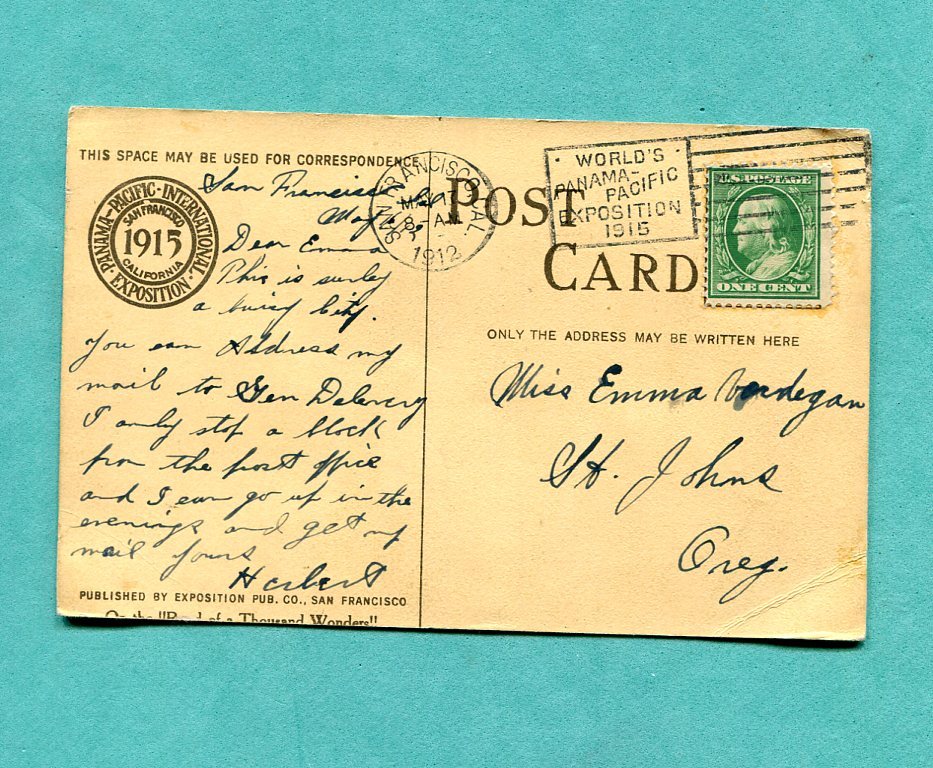 THIS SPACE MAY BE USED FOR CORRESPONDENCE
PANAMA-PACIFIC-INTERNATIONAL
EXPOSITION
SAN FRANCISCO
1915
CALIFORNIA
San Francisco
Dear Emma
This is surley
a buisy City.
You can Address my
mail to Gen Delevery
I only stop a block
from the post office
and I can go up in the
evenings and get my
mail yours
Herbert
PUBLISHED BY EXPOSITION PUB. CO., SAN FRANCISCO
On the "Road of a Thousand Wonders"
SAN FRANCISCO, CAL.
MAY
A.M.
1912
WORLD'S
PANAMA-
PACIFIC
EXPOSITION
1915
POST
CARD
U.S. POSTAGE
ONE CENT
ONLY THE ADDRESS MAY BE WRITTEN HERE
Miss Emma Verdegan
St. Johns
Oreg.